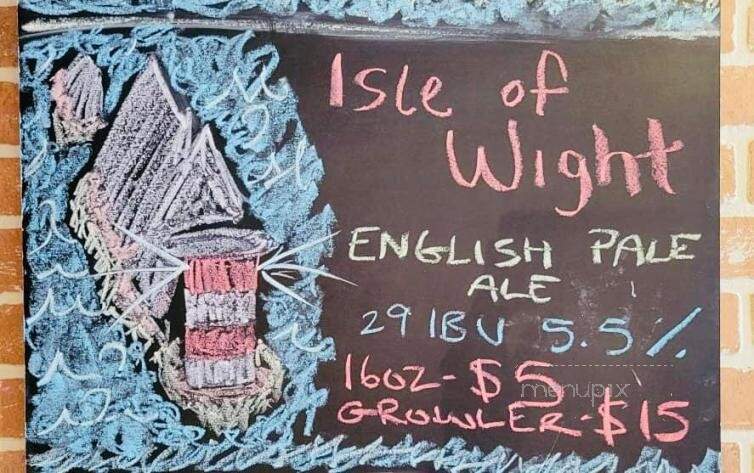 Isle of
Wight
ENGLISH PALE
ALE
29 IBU 5.5%
16oz - $5
menupix
GROWLER - $15